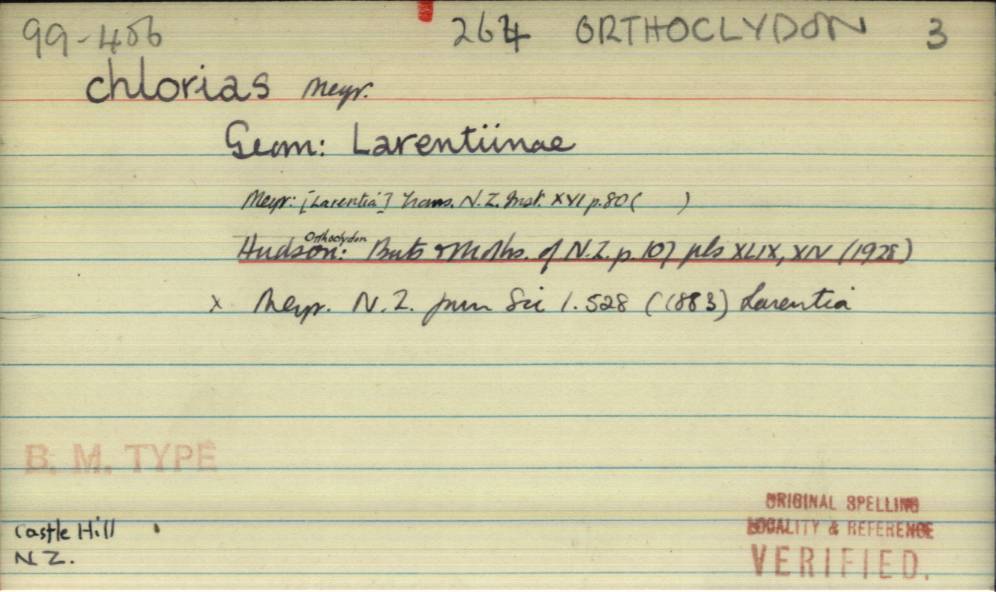 99-456 264 ORTHOCLYDON 3
chlorias Meyr.
Geom: Larentiinae
Meyr: [Larentia] Trans. N.Z. Inst. XVI p.80 ( )
Orthoclydon
Hudson: Buts & Moths. of N.Z. p. 107 pls XLIX, XIV (1928)
x Meyr. N.Z. Journ Sci 1.528 (1883) Larentia
B. M. TYPE
Castle Hill
N Z.
ORIGINAL SPELLING
LOCALITY & REFERENCE
VERIFIED.